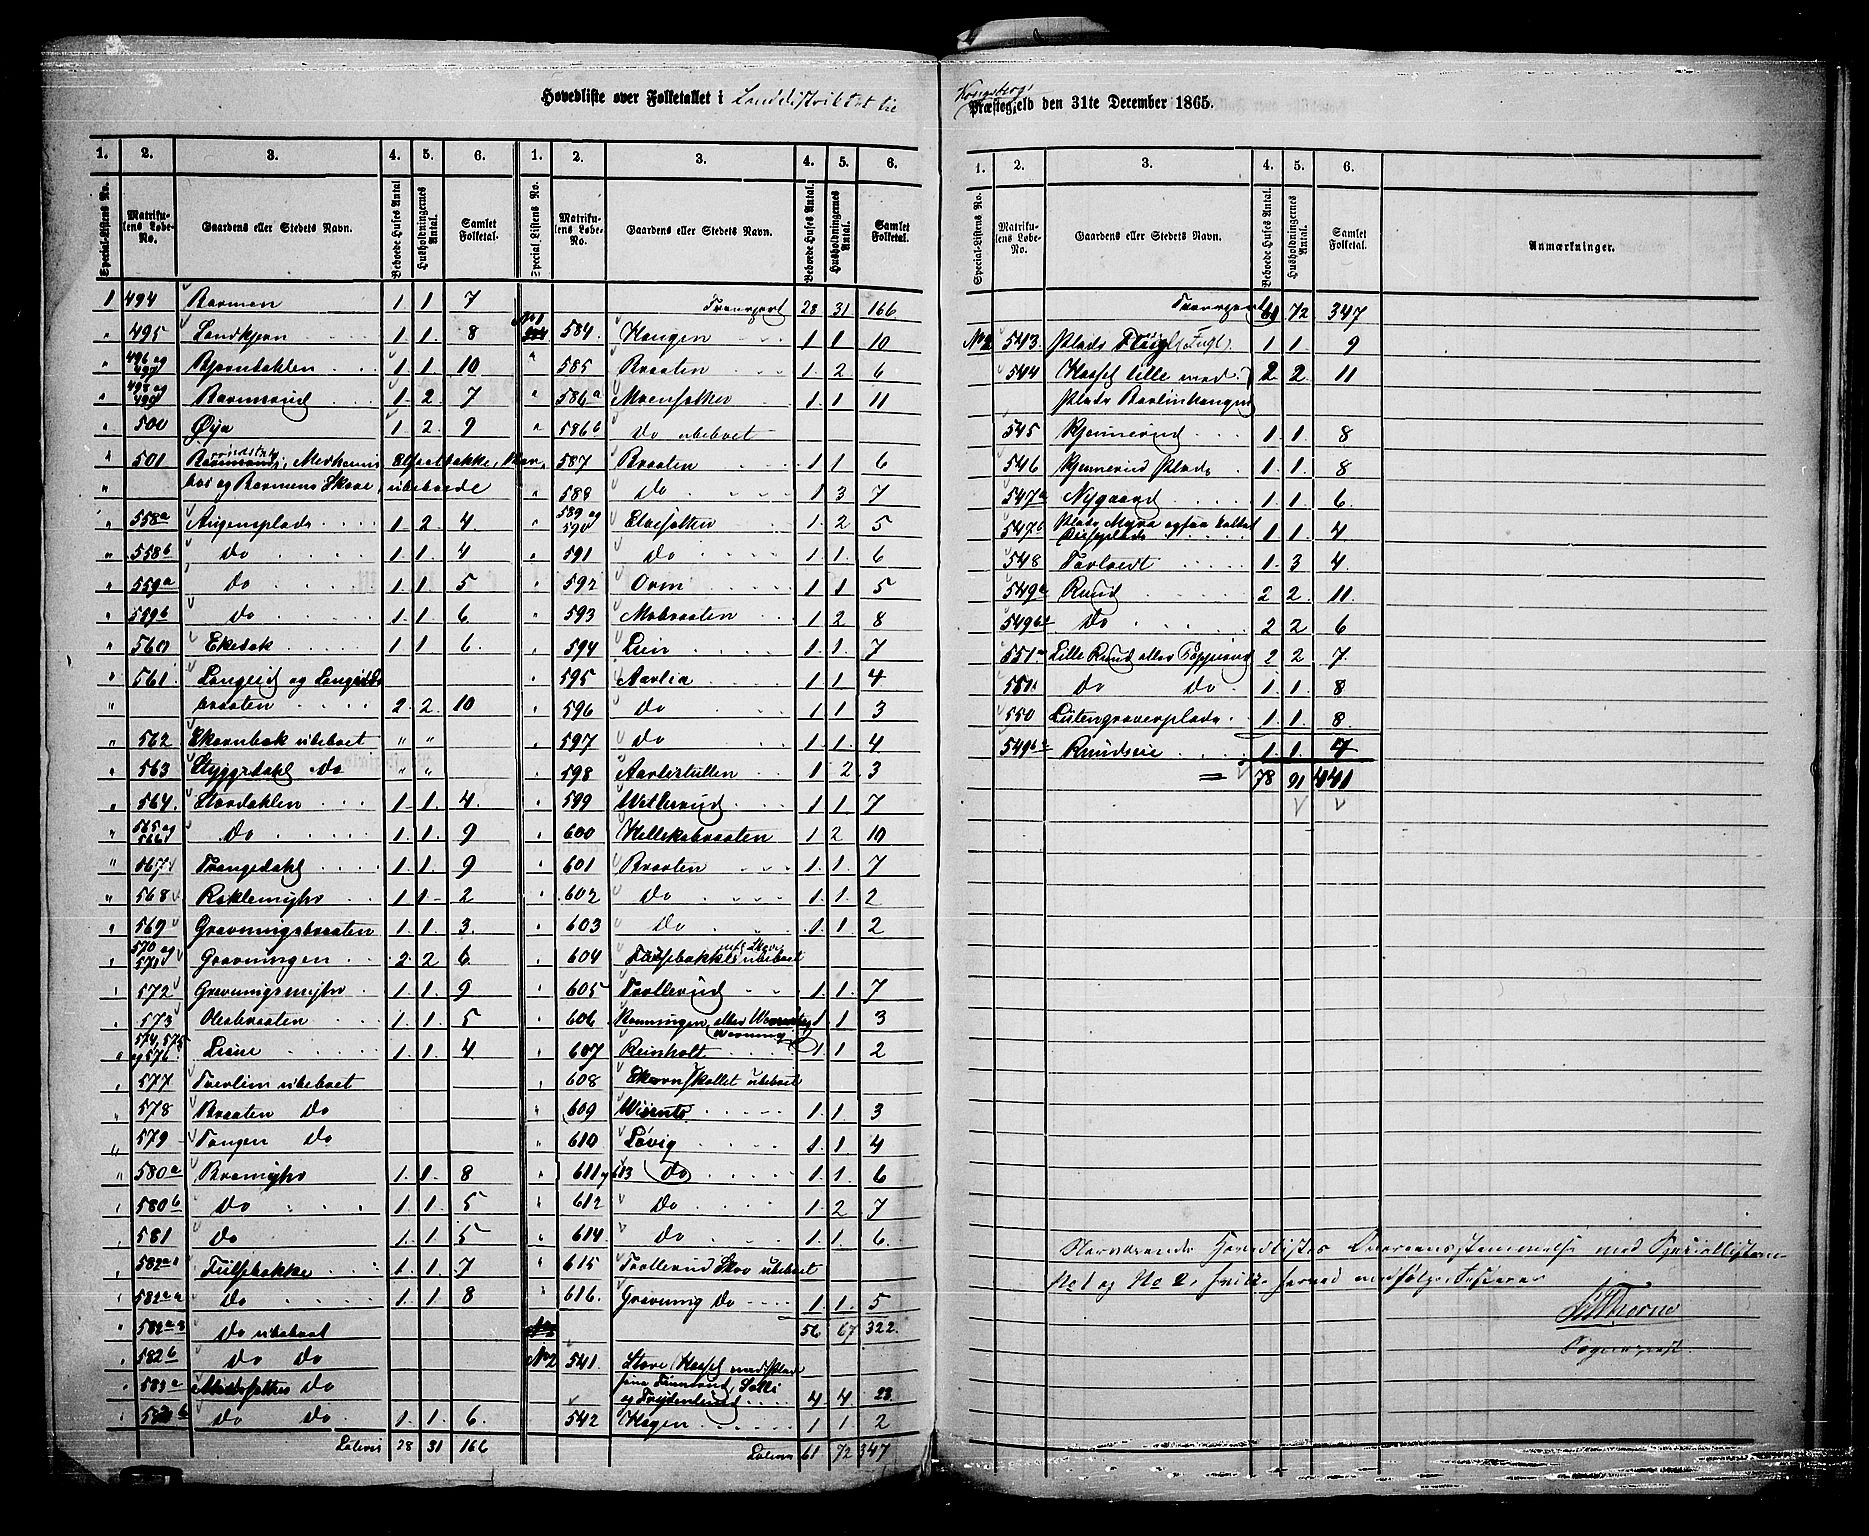 Hovedliste over Folketallet i Landdistriktet til
Kongsbergs
Præstegjeld den 31te December 1865.
1. 2. 3. 4. 5. 6.
Special-Listens No. Matrikulens Løbe-No. Gaardens eller Stedets Navn. Beboede Huses Antal Husholdningernes Antal. Samlet Folketal.
1 494 Barmen 1. 1 7
" 495 Sandkjern 1. 1. 8
" 496 og 497 Bjørndahlen 1. 1. 10
" 498 og 499 Barmsrud 1. 2 7
" 500 Øya 1. 2 9
" 501
" og Barmens Skove, ubeboede
" 558a Augensplads 1. 2 4
" 558b Do 1. 1 4
" 559a Do 1. 1. 5
" 559b Do 1. 1. 6
" 560 Ekebak 1 1 6
" 561 Langeid og
" braaten 2. 2. 10
" 562 Ekornbak ubeboet " "
" 563 Styggedahl Do " "
" 564. Stordahlen 1. 1. 4.
" 565 og 566 Do 1. 1. 9
" 567 Trangedahl 1. 1. 9
" 568 Raklemyhr 1. 1 2
" 569 Gravningsbraaten 1. 1. 3.
" 570 og 571 Gravningen 2. 2 6
" 572 Gravningsmyhr 1. 1. 9
" 573 Olesbraaten 1. 1. 5
" 574, 575 og 576 Liene 1. 1. 4
" 577 Tverlien ubeboet
" 578 Braaten Do
" 579 Tangen Do
" 580a Bramyhr 1. 1. 8
" 580b Do 1. 1. 5
581 Do 1. 1. 5
" 582a1 Tulsebakke 1. 1. 7
" 582a2 Do 1. 1. 8
" 582a3 Do ubeboet
582b Do Do
" 583a Do
583b Do Do 1. 1. 6.
Lateris 28 31 166
1. 2. 3. 4. 5. 6.
Special Listens No. Matrikulens Løbe-No. Gaardens eller Stedets Navn. Beboede Huses Antal. Husholdningernes Antal. Samlet Folketal.
Transport 28 31 166
No 1 584. Haugen 1 1 10
" 585 Braaten 1. 2 6
" 586a Moenfalker 1. 1 11
586b Do ubeboet
587 Braaten 1. 1 6
" 588 Do 1. 3 7
" 589 og 590 1. 2 5
" 591 Do 1. 1 6
" 592 Orm 1. 1 5
" 593 Mobraaten 1. 2 8
" 594 Lien 1. 1. 7
" 595 Aarlia 1. 1 4
596 Do 1. 1 3
" 597 Do 1. 1 4
598 Aarlistullen 1. 2. 3
" 599 Wollerud 1. 1. 7
" 600 Hellekabraaten 1. 2 10
" 601 Braaten 1. 1. 7
" 602 Do 1. 1. 2
603 Do 1. 1. 2
" 604 Tulsebakkes ubeboet
" 605 Trollerud 1. 1. 7
" 606 Ramningen eller 1 1 3
" 607 Reinholt 1. 1 2
" 608 Ekornskollet ubeboet
" 609 1. 1. 3
" 610 Løvig 1. 1. 4
" 611 og 613 Do 1. 1. 6
" 612 Do 1. 2 7
" 614 Do 1. 1. 6
" 615 Trollerud Skov ubeboet
" 616. Gravning Do 1. 1. 5
56 67 322.
No 2 541. Store Hassel med Plad
sene
og 4 4 23
542 Hagen 1 1 2
Lateris 61 72 347
1. 2. 3. 4. 5. 6.
Special-Listens No. Matrikulens Løbe-No. Gaardens eller Stedets Navn. Beboede Huses Antal. Husholdningernes Antal. Samlet Folketal. Anmærkninger.
Transport 61 72 347
No 2 543. Plads 1. 1. 9
544 Hassel lille med 2 2 11
Plads
545 Kjennerud 1. 1. 8
546 Kjennerud Plads 1. 1. 8
547a Nygaard 1. 1. 6
547b Plads Myra ogsaa kaldet
1. 1. 4
548 1. 3 4
549a Ruud 2 2 11.
549b1 Do 2 2 6
551a Lille Ruud eller 2 2 7.
551b Do Do 1. 1. 8
550 Lütengraverplads 1. 1. 8
549b2 Ruudseie 1. 1. 7
78 91 441
Nærværende Hovedlistes Overeensstemmelse med Speciallisterne
No 1 og No 2,
Sogneprest.